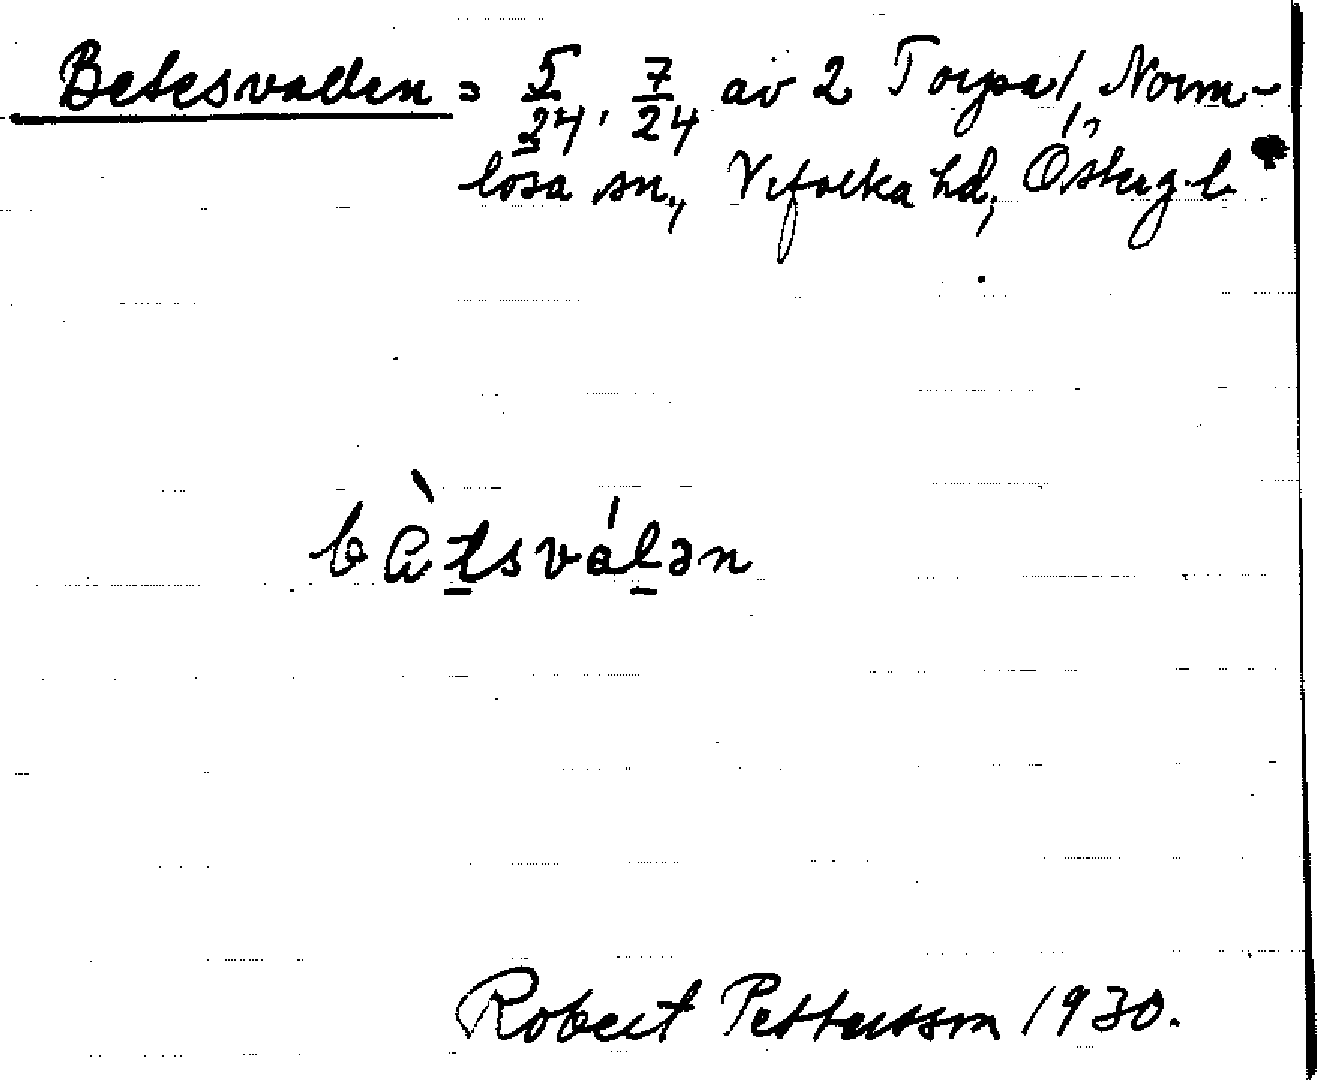 Betesvallen = 5/24, 7/24 av 2 Torpa, Norm-
lösa sn, Vifolka hd, Österg. l.
bètsválən
Robert Pettersson 1930.